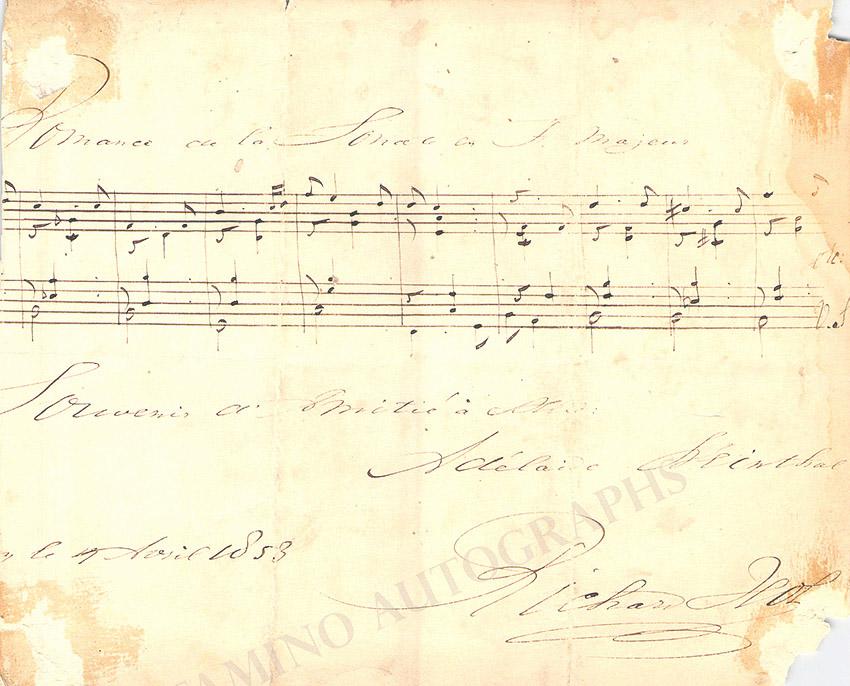 Romance de la Sonate en F. majeur
etc:
Souvenir d'Amitié à
Adélaide
le 4 Avril 1853
Richard
TAMINO AUTOGRAPHS